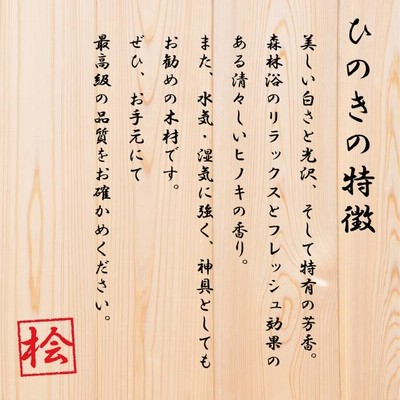 ひのきの特徴
美しい白さと光沢、そして特有の芳香。
森林浴のリラックスとフレッシュ効果の
ある清々しいヒノキの香り。
また、水気・湿気に強く、神具としても
お勧めの木材です。
ぜひ、お手元にて
最高級の品質をお確かめください。
桧